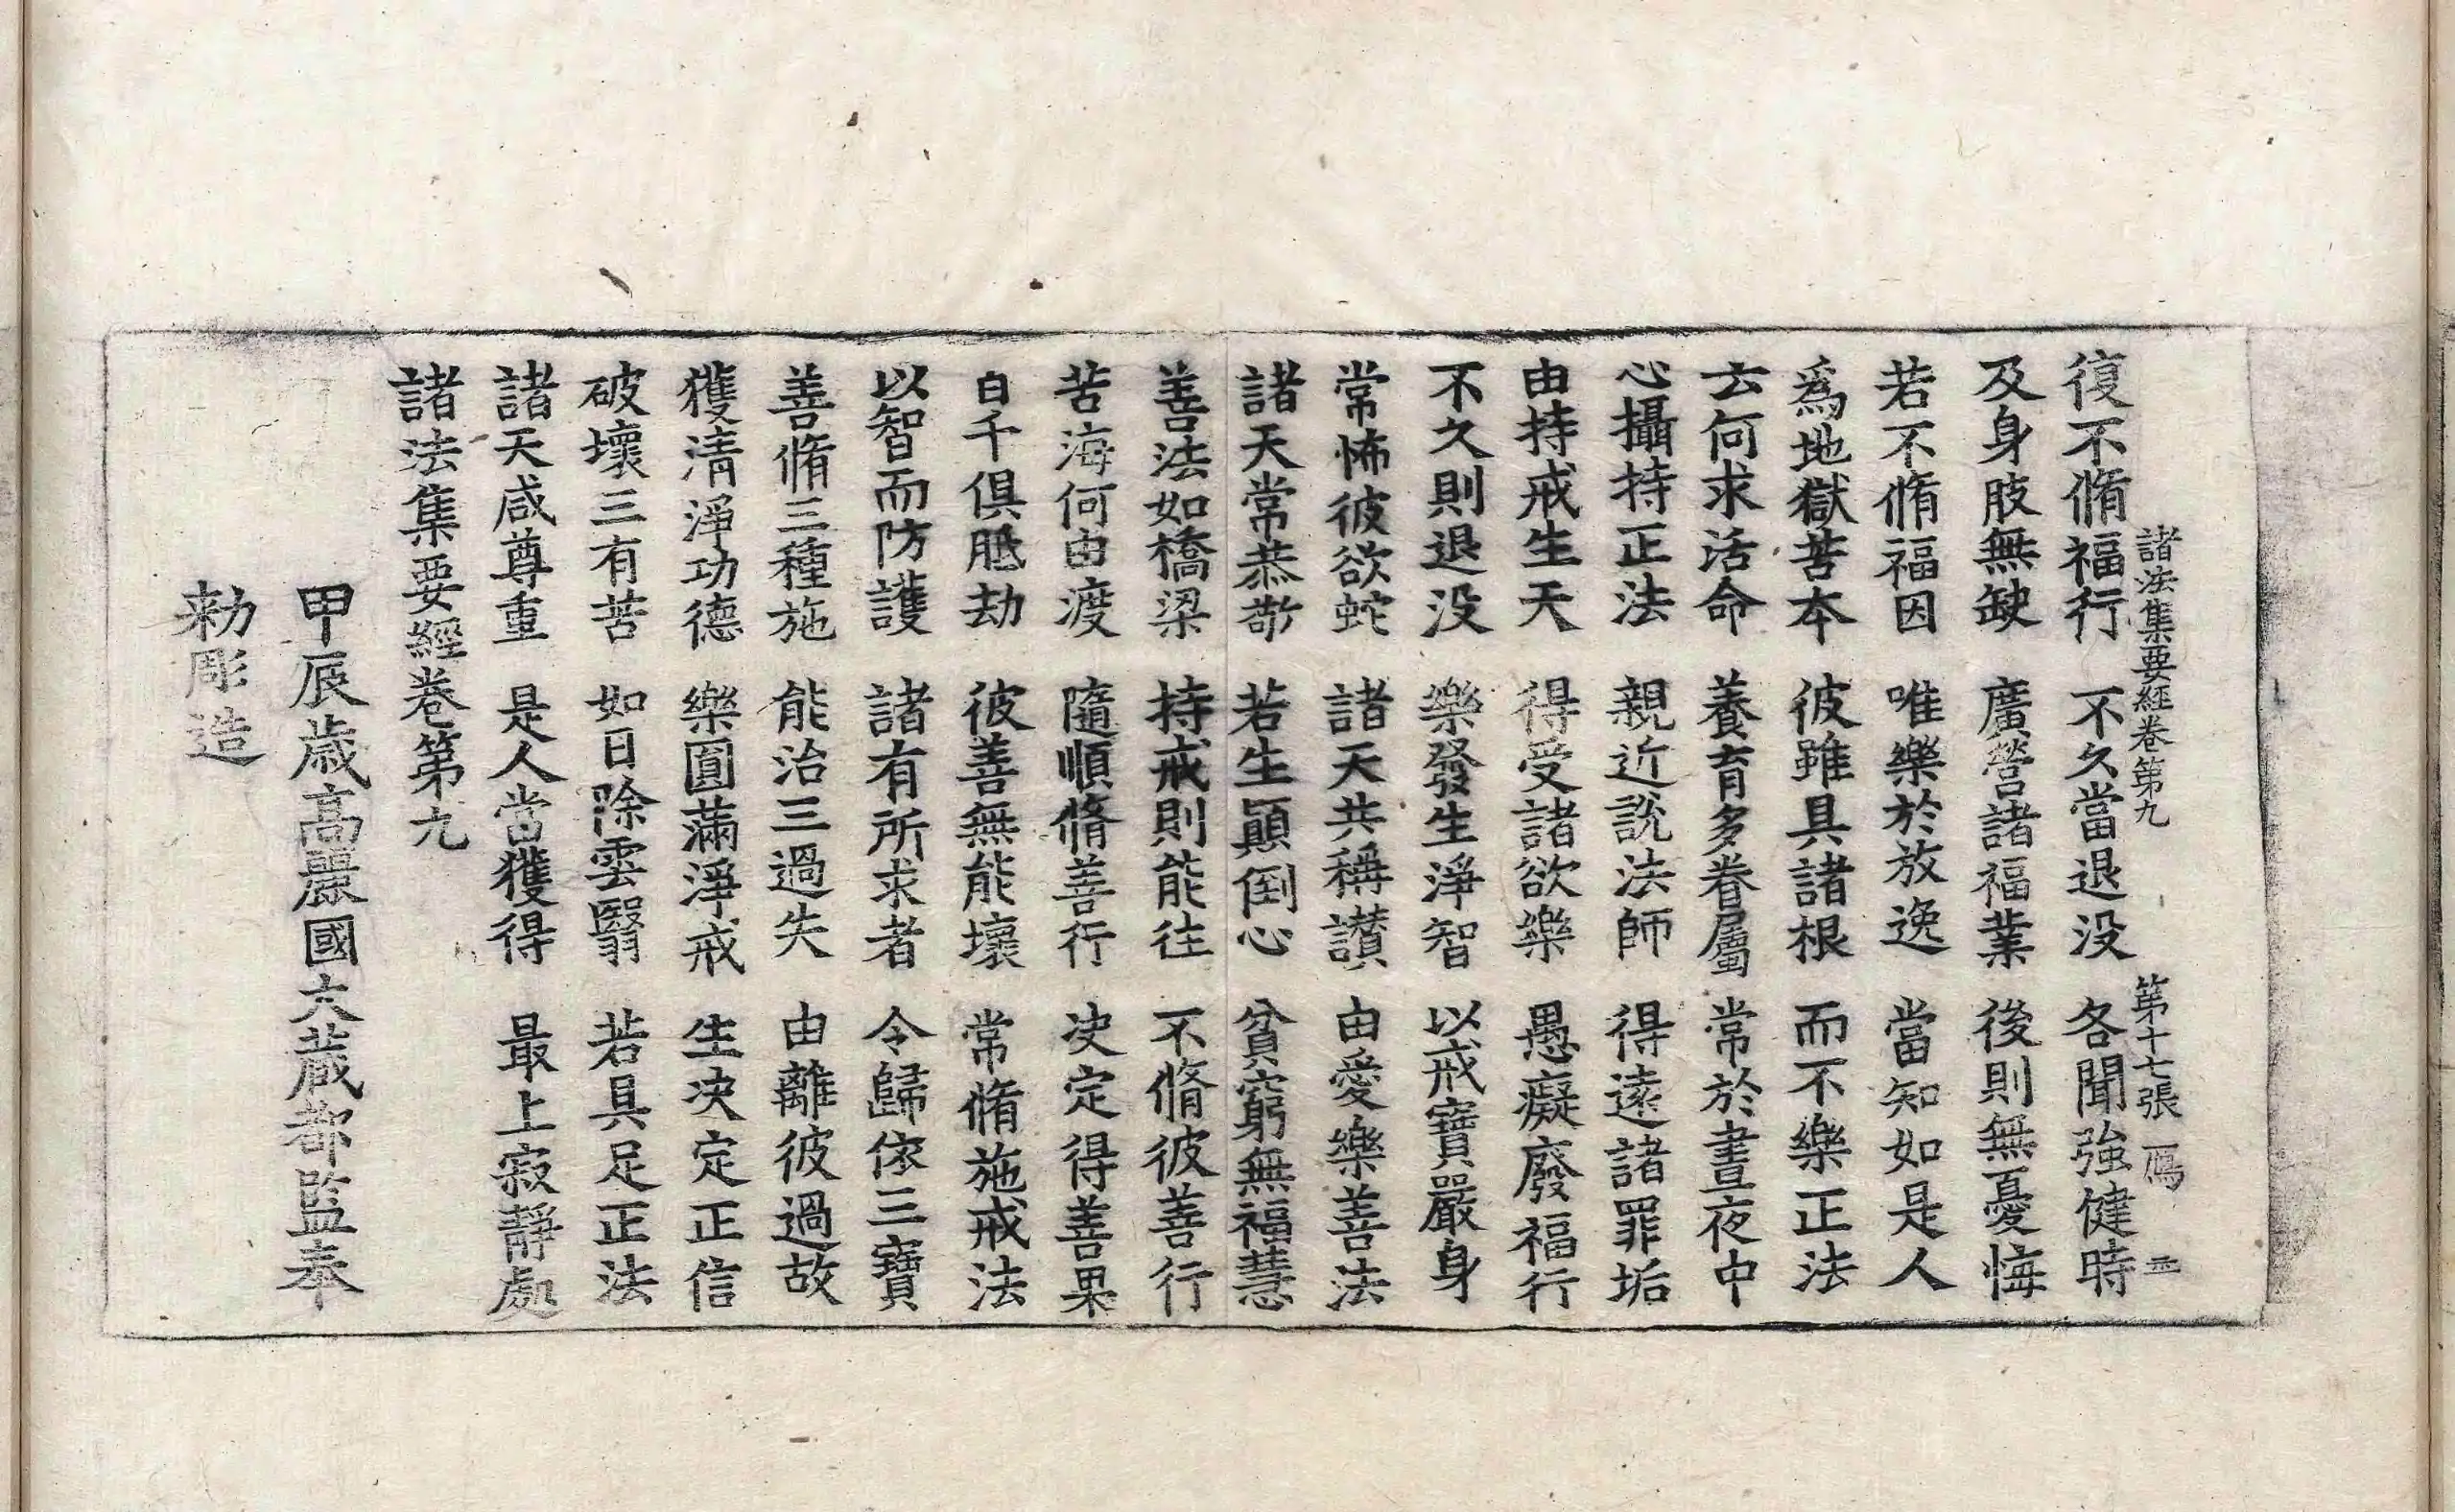 諸法集要經卷第九 第十七張 鴈
復不脩福行 不久當退没 各聞強健時
及身肢無缺 廣營諸福業 後則無憂悔
若不脩福因 唯樂於放逸 當知如是人
爲地獄苦本 彼雖具諸根 而不樂正法
云何求活命 養育多眷屬 常於晝夜中
心攝持正法 親近說法師 得遠諸罪垢
由持戒生天 得受諸欲樂 愚癡廢福行
不久則退没 樂發生淨智 以戒寶嚴身
常怖彼欲蛇 諸天共稱讃 由愛樂善法
諸天常恭敬 若生顚倒心 貧窮無福慧
善法如橋梁 持戒則能往 不脩彼善行
苦海何由渡 隨順脩善行 决定得善果
百千俱胝劫 彼善無能壞 常脩施戒法
以智而防護 諸有所求者 令歸依三寶
善脩三種施 能治三過失 由離彼過故
獲清淨功德 樂圓滿淨戒 生决定正信
破壞三有苦 如日除雲翳 若具足正法
諸天咸尊重 是人當獲得 最上寂靜處
諸法集要經卷第九
甲辰歳高麗國大蔵都監奉
勅彫造